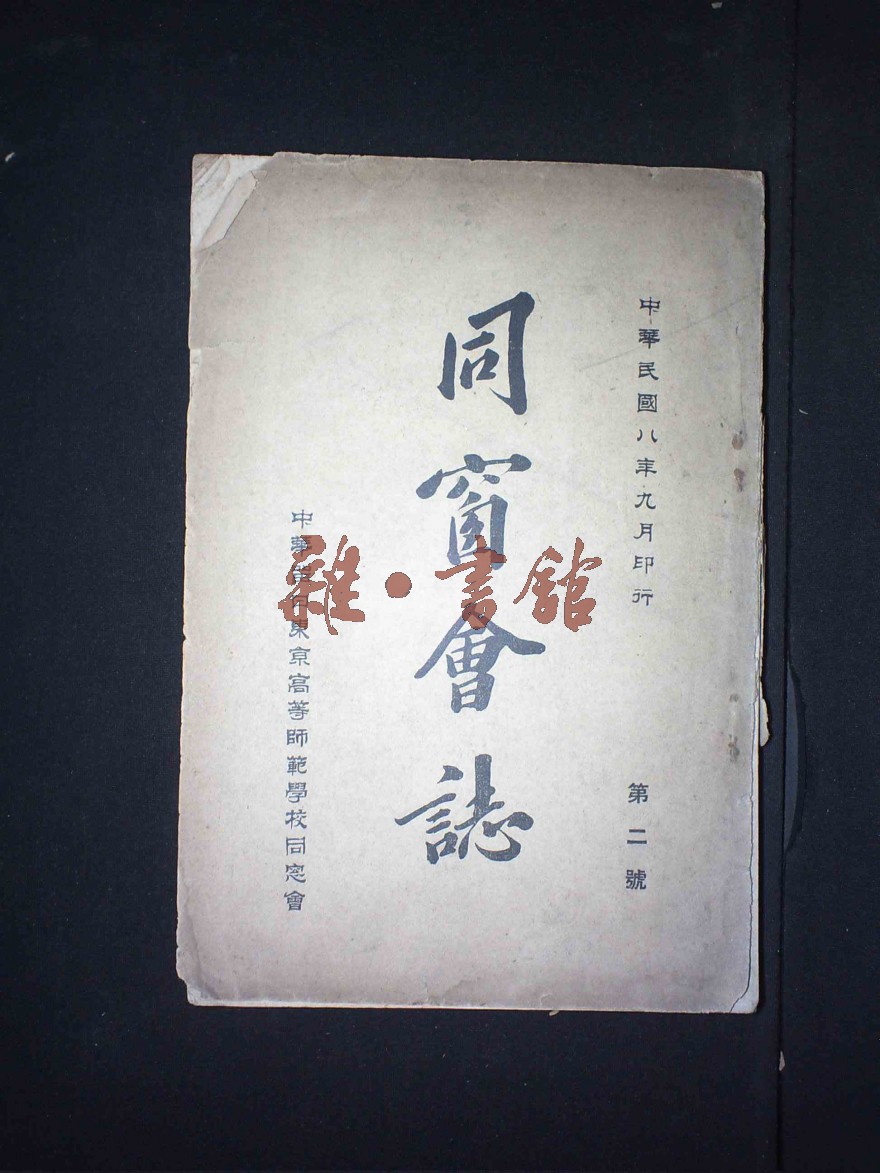 中華民國八年九月印行
第二號
同窗會誌
中華留日東京高等師範學校同窓會
雜·書館